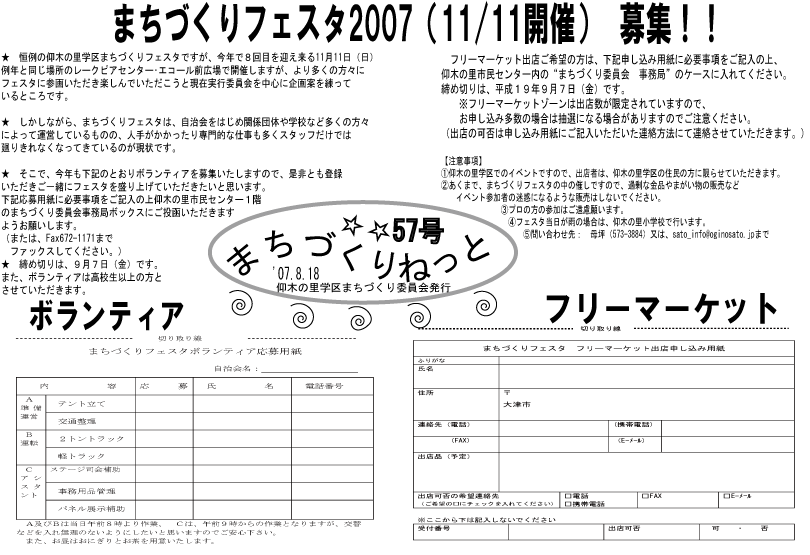 まちづくりフェスタ2007（11/11開催）　募集！！
★　恒例の仰木の里学区まちづくりフェスタですが、今年で８回目を迎え来る11月11日（日）
例年と同じ場所のレークピアセンター・エコール前広場で開催しますが、より多くの方々に
フェスタに参画いただき楽しんでいただこうと現在実行委員会を中心に企画案を練って
いるところです。
★　しかしながら、まちづくりフェスタは、自治会をはじめ関係団体や学校など多くの方々
によって運営しているものの、人手がかかったり専門的な仕事も多くスタッフだけでは
廻りきれなくなってきているのが現状です。
★　そこで、今年も下記のとおりボランティアを募集いたしますので、是非とも登録
いただきご一緒にフェスタを盛り上げていただきたいと思います。
下記応募用紙に必要事項をご記入の上仰木の里市民センター１階
のまちづくり委員会事務局ボックスにご投函いただきます
ようお願いします。
（または、Fax672-1171まで
ファックスしてください。）
★　締め切りは、９月７日（金）です。
また、ボランティアは高校生以上の方と
させていただきます。
フリーマーケット出店ご希望の方は、下記申し込み用紙に必要事項をご記入の上、
仰木の里市民センター内の“まちづくり委員会　事務局”のケースに入れてください。
締め切りは、平成１９年９月７日（金）です。
※フリーマーケットゾーンは出店数が限定されていますので、
お申し込み多数の場合は抽選になる場合がありますのでご注意ください。
（出店の可否は申し込み用紙にご記入いただいた連絡方法にて連絡させていただきます。）
【注意事項】
①仰木の里学区でのイベントですので、出店者は、仰木の里学区の住民の方に限らせていただきます。
②あくまで、まちづくりフェスタの中の催しですので、過剰な金品やまがい物の販売など
イベント参加者の迷惑になるような販売はしないでください。
③プロの方の参加はご遠慮願います。
④フェスタ当日が雨の場合は、仰木の里小学校で行います。
⑤問い合わせ先：　母坪（573-3884）又は、sato_info@oginosato.jpまで
☆☆57号
まちづくりねっと
'07.8.18
仰木の里学区まちづくり委員会発行
ボランティア
切り取り線
まちづくりフェスタボランティア応募用紙
自治会名：
内　容　応　募　氏　名　電話番号
A 準備 運営　テント立て
交通整理
B 運転　２トントラック
軽トラック
C アシスタント　ステージ司会補助
事務用品管理
パネル展示補助
A及びBは当日午前８時より作業、　Cは、午前９時からの作業となりますが、交替
などを入れ無理のないようにしたいと思いますのでご安心下さい。
また、お昼はおにぎりとお茶を用意いたします。
フリーマーケット
切り取り線
まちづくりフェスタ　フリーマーケット出店申し込み用紙
ふりがな
氏名
住所　〒
大津市
連絡先（電話）　（携帯電話）
（FAX）　（Eﾒｰﾙ）
出店品（予定）
出店可否の希望連絡先　□電話　□FAX　□Eﾒｰﾙ
（ご希望の□にチェックを入れてください）　□携帯電話
※ここから下は記入しないでください
受付番号　出店可否　可　・　否